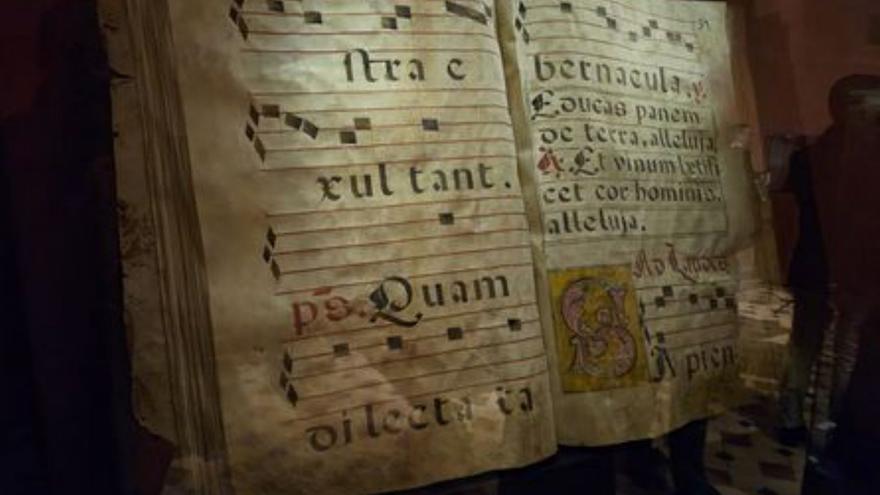 stra e
xul tant.
ps. Quam
dilecta ta
bernacula. ℣.
Educas panem
de terra, alleluja,
℟. Et vinum lætifi
cet cor hominis.
alleluja.
Ad Laudes
SApien